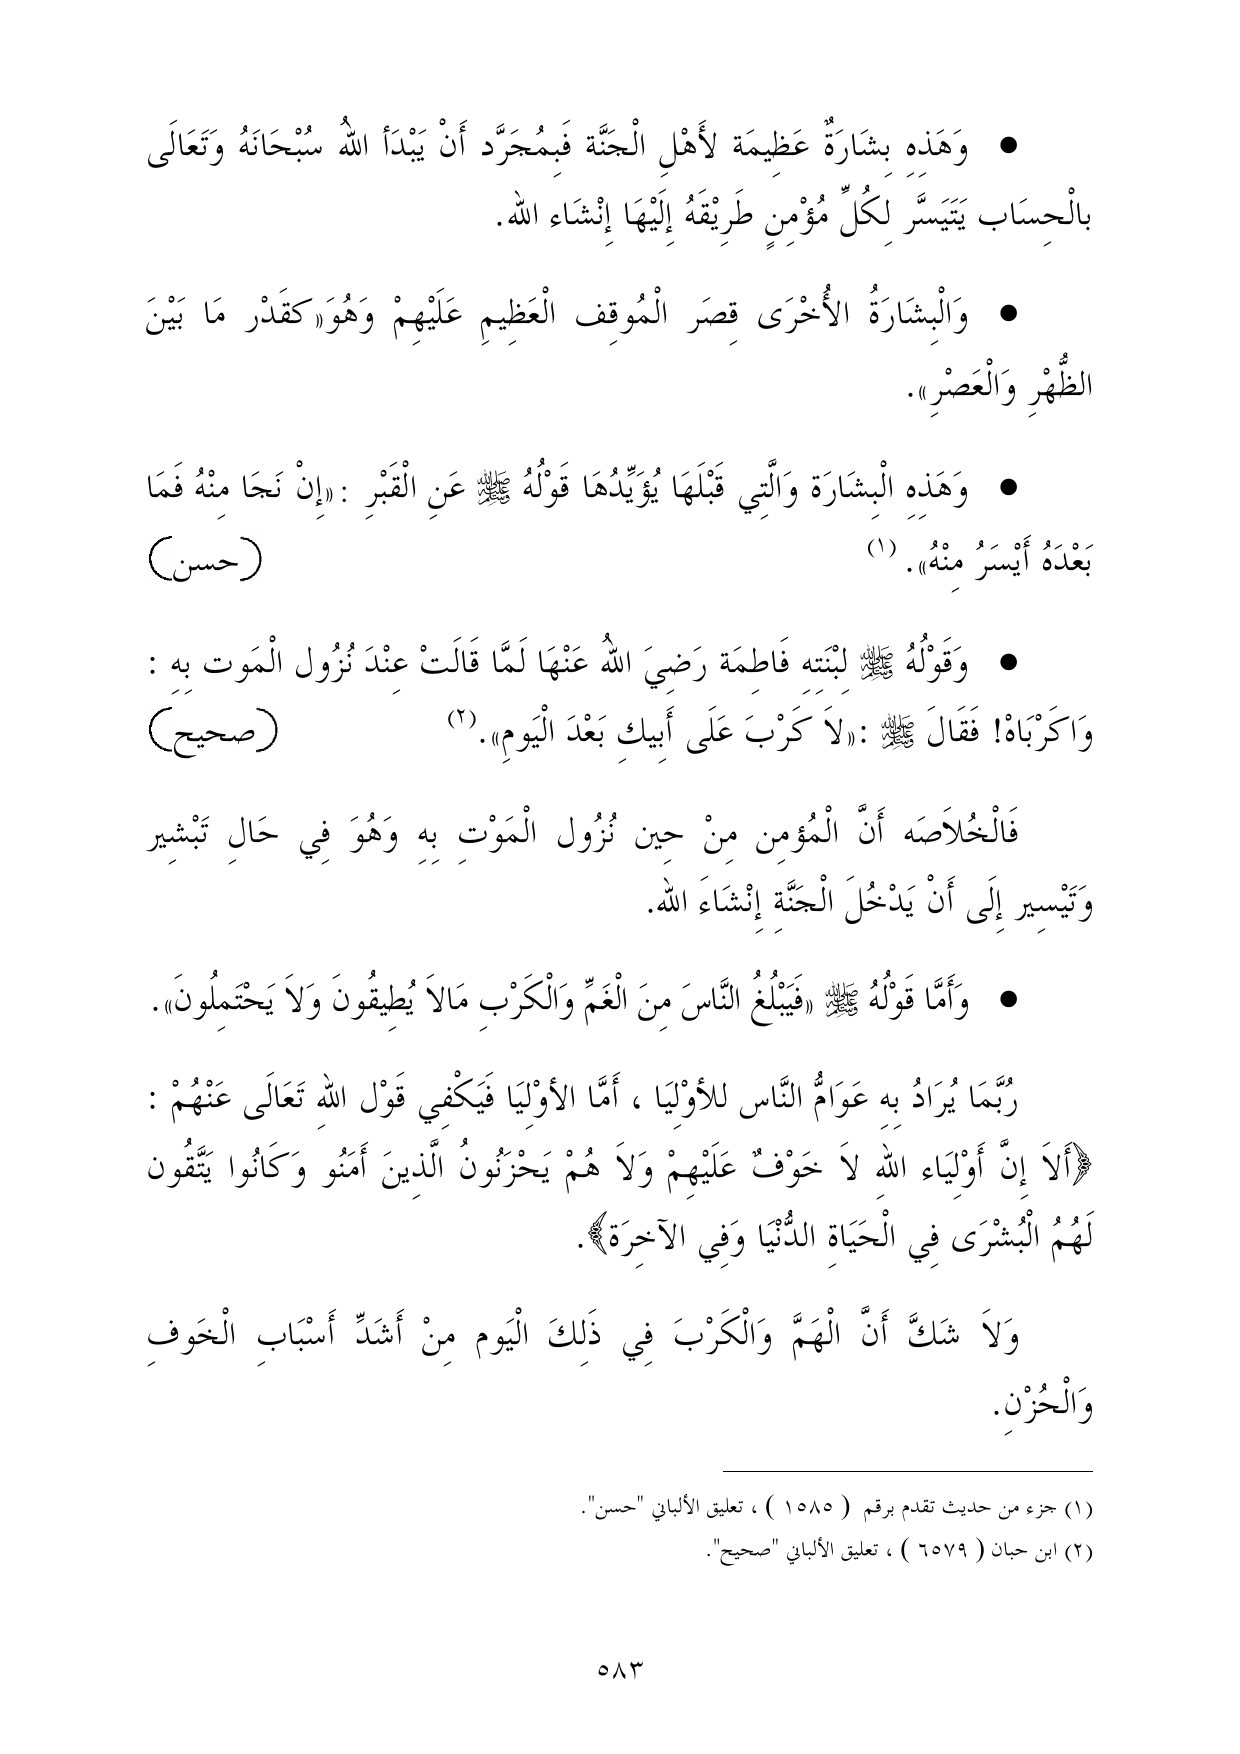 ● وَهَذِهِ بِشَارَةٌ عَظِيمَة لأَهْلِ الْجَنَّة فَبِمُجَرَّد أَنْ يَبْدَأ اللهُ سُبْحَانَهُ وَتَعَالَى
بالْحِسَاب يَتَيَسَّر لِكُلِّ مُؤْمِنٍ طَرِيْقَهُ إِلَيْهَا إِنْشَاء الله.
● وَالْبِشَارَةُ الأُخْرَى قِصَر الْمُوقِف الْعَظِيمِ عَلَيْهِمْ وَهُوَ«كقَدْر مَا بَيْنَ
الظُّهْرِ وَالْعَصْرِ».
● وَهَذِهِ الْبِشَارَة وَالَّتِي قَبْلَهَا يُؤَيِّدُهَا قَوْلُهُ ﷺ عَنِ الْقَبْرِ :«إِنْ نَجَا مِنْهُ فَمَا
بَعْدَهُ أَيْسَرُ مِنْهُ». (١) (حسن)
● وَقَوْلُهُ ﷺ لِبْنَتِهِ فَاطِمَة رَضِيَ اللهُ عَنْهَا لَمَّا قَالَتْ عِنْدَ نُزُول الْمَوت بِهِ :
وَاكَرْبَاهْ! فَقَالَ ﷺ :«لاَ كَرْبَ عَلَى أَبِيكِ بَعْدَ الْيَومِ».(٢) (صحيح)
فَالْخُلاَصَه أَنَّ الْمُؤمِن مِنْ حِين نُزُول الْمَوْتِ بِهِ وَهُوَ فِي حَالِ تَبْشِير
وَتَيْسِير إِلَى أَنْ يَدْخُلَ الْجَنَّةِ إِنْشَاءَ الله.
● وَأَمَّا قَوْلُهُ ﷺ «فَيَبْلُغُ النَّاسَ مِنَ الْغَمِّ وَالْكَرْبِ مَالاَ يُطِيقُونَ وَلاَ يَحْتَمِلُونَ».
رُبَّمَا يُرَادُ بِهِ عَوَامُّ النَّاس للأوْلِيَا ، أَمَّا الأوْلِيَا فَيَكْفِي قَوْل اللهِ تَعَالَى عَنْهُمْ :
﴿أَلاَ إِنَّ أَوْلِيَاء اللهِ لاَ خَوْفٌ عَلَيْهِمْ وَلاَ هُمْ يَحْزَنُونُ الَّذِينَ أَمَنُو وَكَانُوا يَتَّقُون
لَهُمُ الْبُشْرَى فِي الْحَيَاةِ الدُّنْيَا وَفِي الآخِرَة﴾.
وَلاَ شَكَّ أَنَّ الْهَمَّ وَالْكَرْبَ فِي ذَلِكَ الْيَوم مِنْ أَشَدِّ أَسْبَابِ الْخَوفِ
وَالْحُزْنِ.
(١) جزء من حديث تقدم برقم ( ١٥٨٥ ) ، تعليق الألباني "حسن".
(٢) ابن حبان ( ٦٥٧٩ ) ، تعليق الألباني "صحيح".
٥٨٣